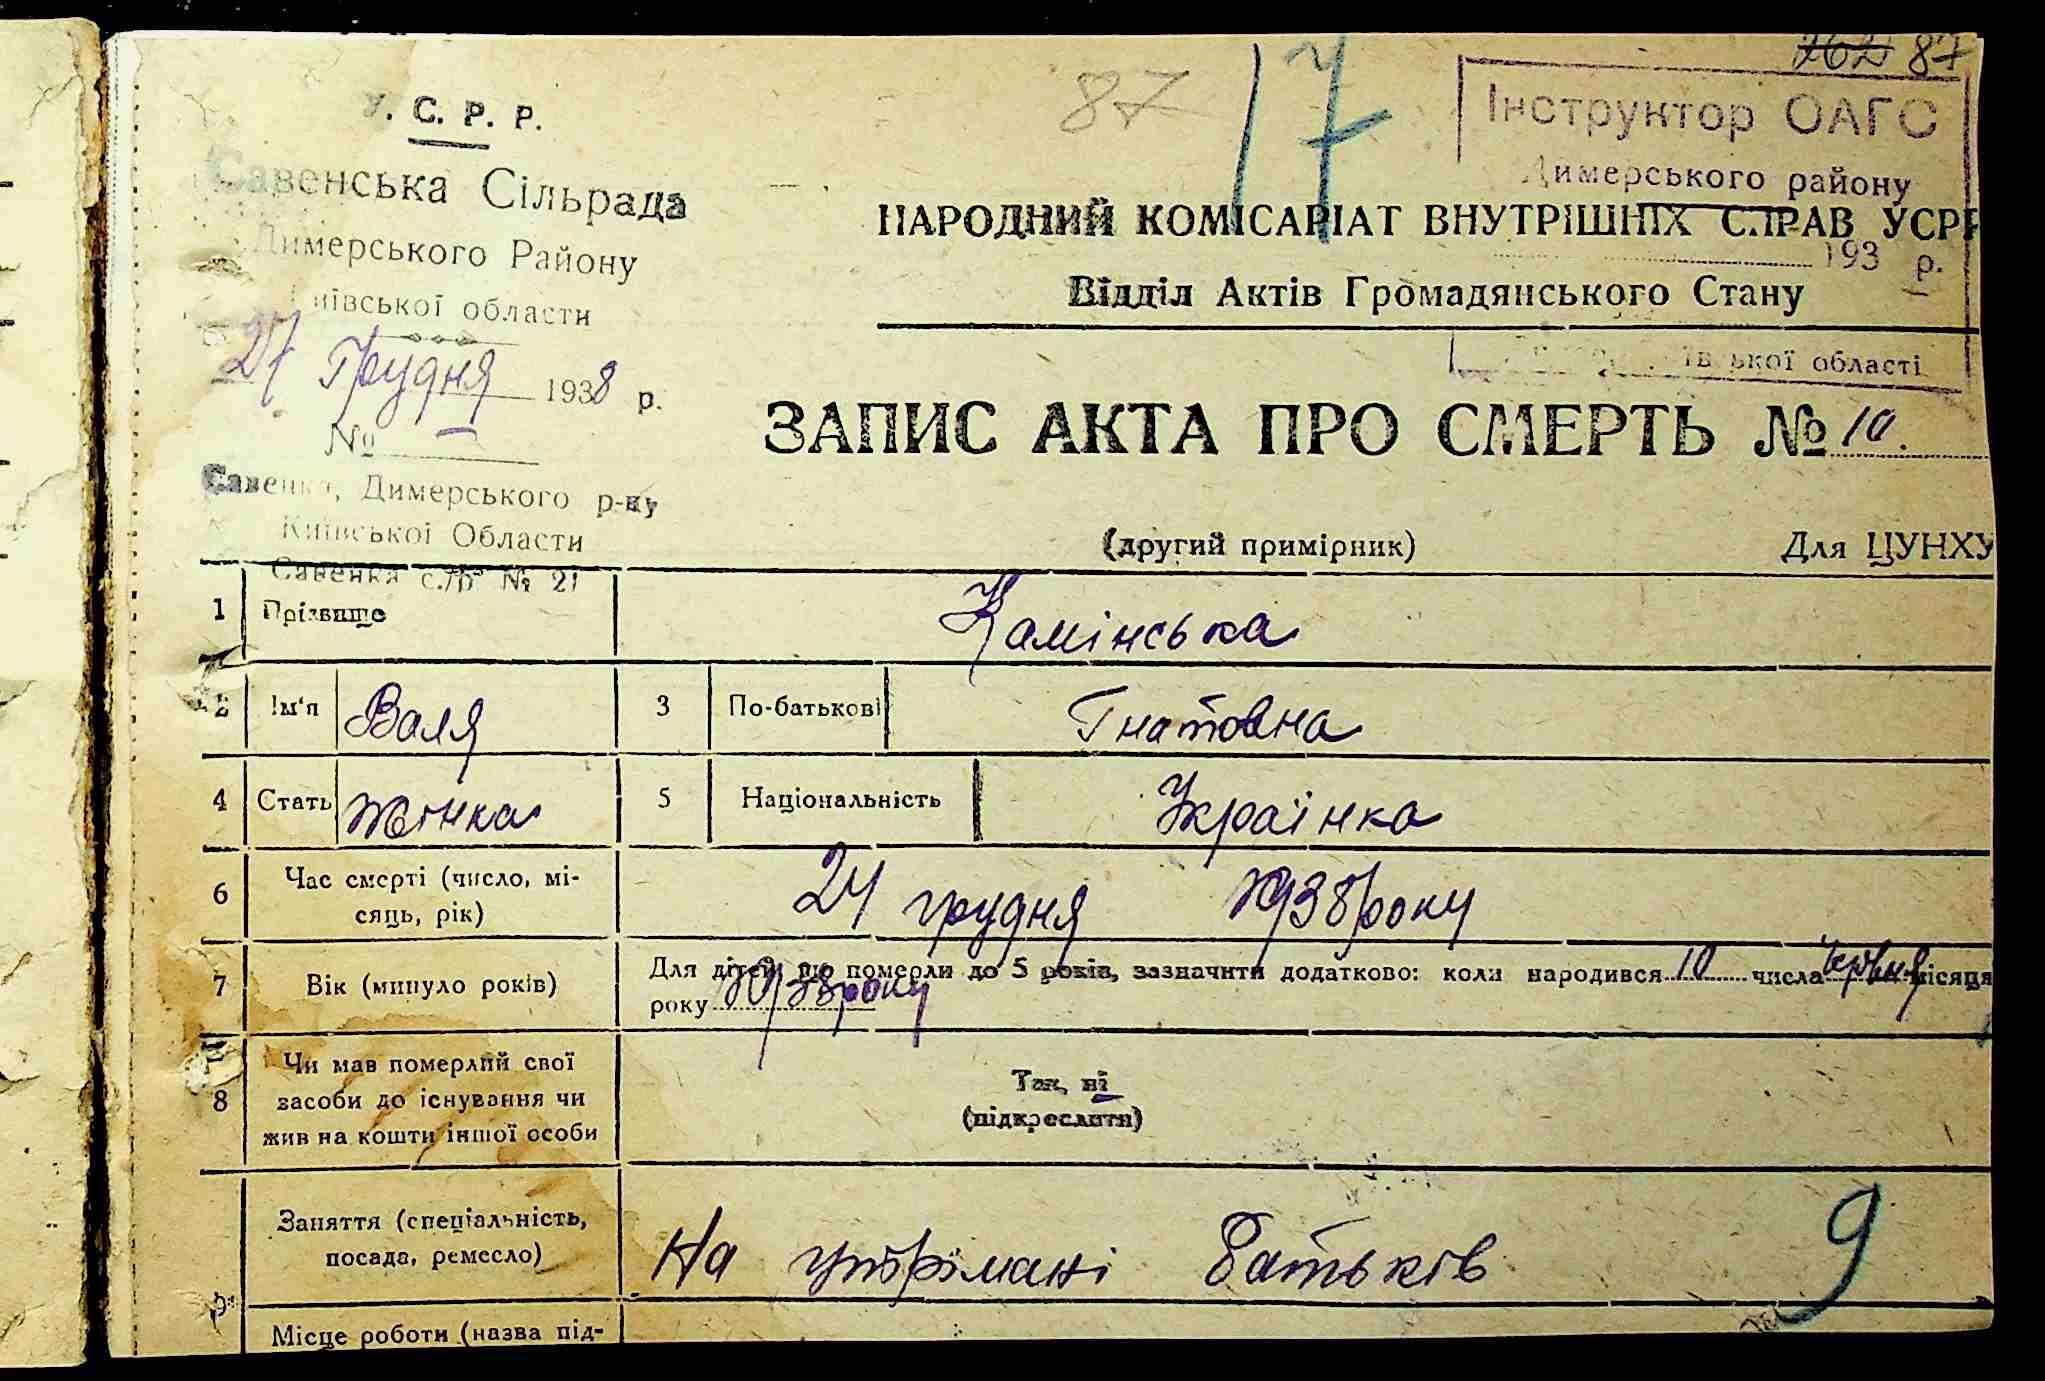 262 87
87 17
У. С. Р. Р.
Савенська Сільрада
Димерського Району
Київської области
27 Грудня 1938 р.
№ —
Савенка, Димерського р-ну
Київської Области
Савенка с./р. № 21
Інструктор ОАГС
Димерського району
193 р.
Київської області
НАРОДНИЙ КОМІСАРІАТ ВНУТРІШНІХ СПРАВ УСРР
Відділ Актів Громадянського Стану
ЗАПИС АКТА ПРО СМЕРТЬ № 10.
(другий примірник) Для ЦУНХУ
1 Прізвище Камінська
2 Ім'я Валя 3 По-батькові Гнатовна
4 Стать жінка 5 Національність Українка
6 Час смерті (число, мі-
сяць, рік) 24 грудня 1938 року
7 Вік (минуло років) Для дітей, що померли до 5 років, зазначити додатково: коли народився 10 числа червня місяця
року 1938 року
8 Чи мав померлий свої
засоби до існування чи
жив на кошти іншої особи
Так, ні
(підкреслити)
9 Заняття (спеціальність,
посада, ремесло) На утрімані батьків 9
Місце роботи (назва під-